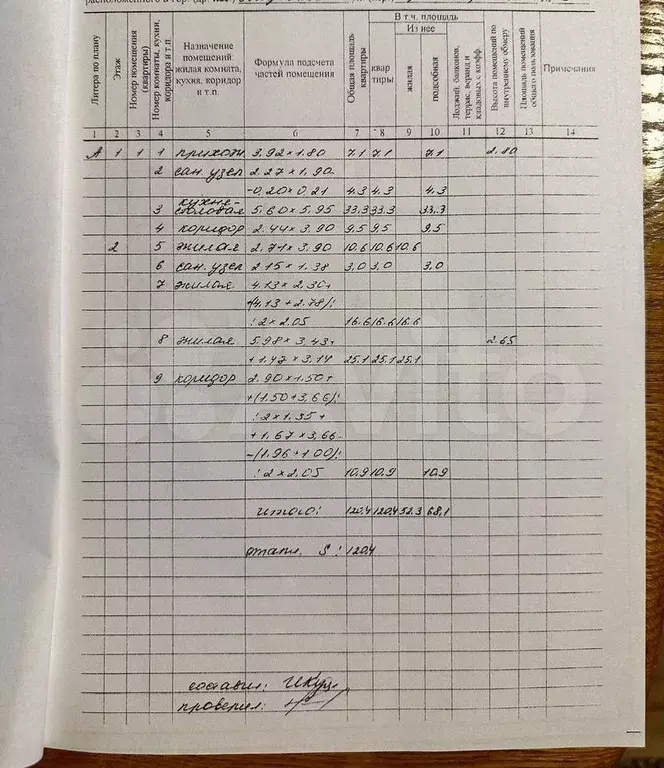 расположенного в гор. (др. нас.)
Литера по плану
Этаж
Номер помещения (квартиры)
Номер комнаты, кухни, коридора и т.п.
Назначение помещений: жилая комната, кухня, коридор и т.п.
Формула подсчета частей помещения
Общая площадь квартиры
В т.ч. площадь
Из нее
квар тиры
жилая
подсобная
Лоджий, балконов, террас, веранд и кладовых с коэфф.
Высота помещений по внутреннему обмеру
Площадь помещений общего пользования
Примечания
1 2 3 4 5 6 7 8 9 10 11 12 13 14
А 1 1 1 прихож 3.92×1.80 7.1 7.1 7.1 2.80
2 сан.узел 2.27×1.90-
-0.20×0.21 4.3 4.3 4.3
кухне-
3 столовая 5.60×5.95 33.3 33.3 33.3
4 коридор 2.44×3.90 9.5 9.5 9.5
2 5 жилая 2.71×3.90 10.6 10.6 10.6
6 сан.узел 2.15×1.38 3.0 3.0 3.0
7 жилая 4.13×2.30+
+(4.13+2.78)/:
:2×2.05 16.6 16.6 16.6
8 жилая 5.98×3.43+ 2.65
+1.47×3.14 25.1 25.1 25.1
9 коридор 2.90×1.50+
+(1.50+3.66)/:
:2×1.35+
+1.67×3.66-
-(1.96+1.00)/:
:2×2.05 10.9 10.9 10.9
итого: 120.4 120.4 52.3 68.1
отапл. S: 120.4
составил:
проверил:
Avito